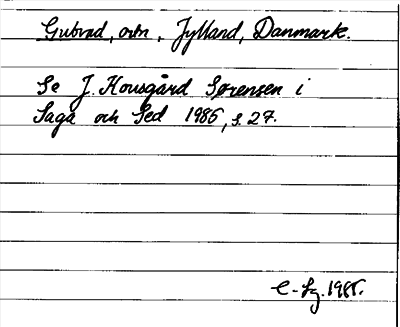 Gubrad, ortn., Jylland, Danmark.
Se J. Kousgård Sørensen i
Saga och Sed 1985, s. 27.
C-Sg. 1985.